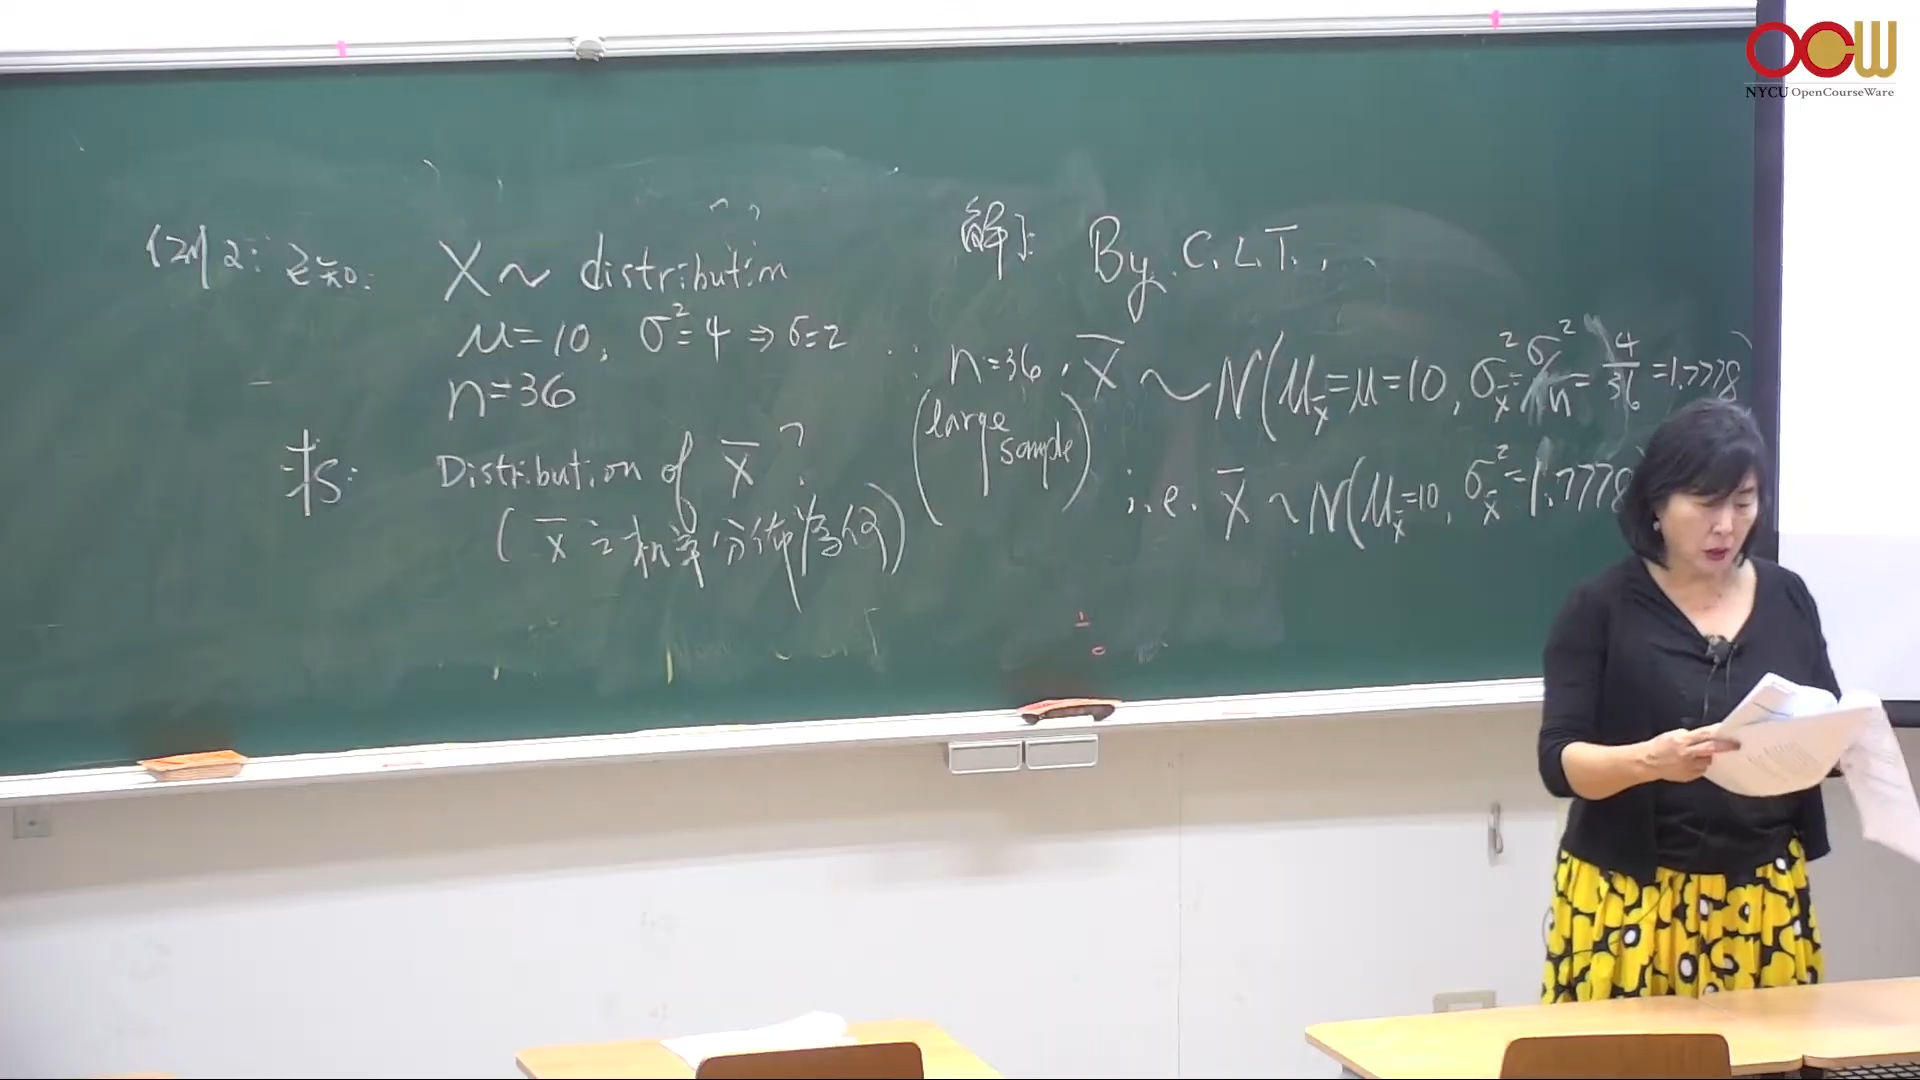 OCW
NYCU OpenCourseWare
例2: 已知: X ~ distribution
μ=10, σ²=4 ⇒ σ=2
n=36
求: Distribution of X̄ ?
(X̄ 之機率分佈為何)
解: By C.L.T.,
∵ n=36 ∴ X̄ ~ N(μ_X̄=μ=10, σ²_X̄=σ²/n=4/36=1.7778)
(large sample)
i.e. X̄ ~ N(μ_X̄=10, σ²_X̄=1.7778)